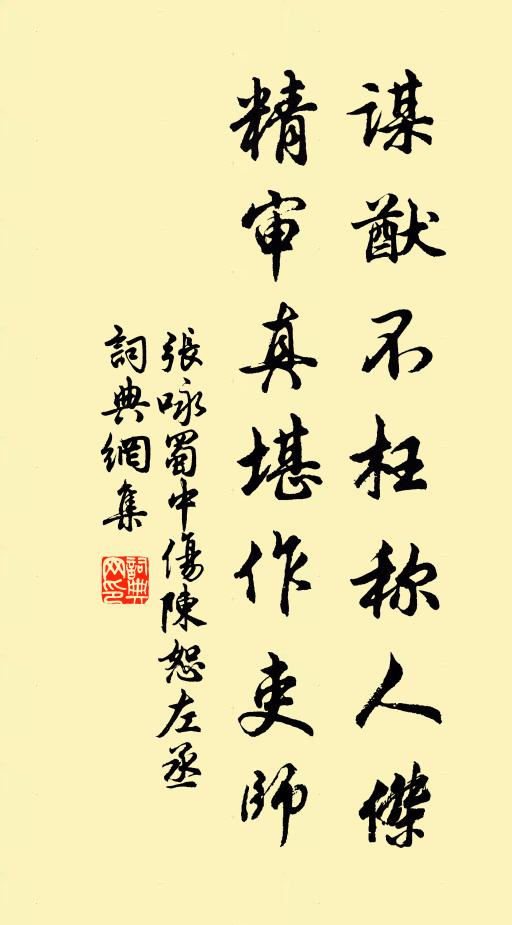 谋猷不枉称人傑
精审真堪作吏師
張咏蜀中傷陳恕左丞
詞典網集
詞典网印